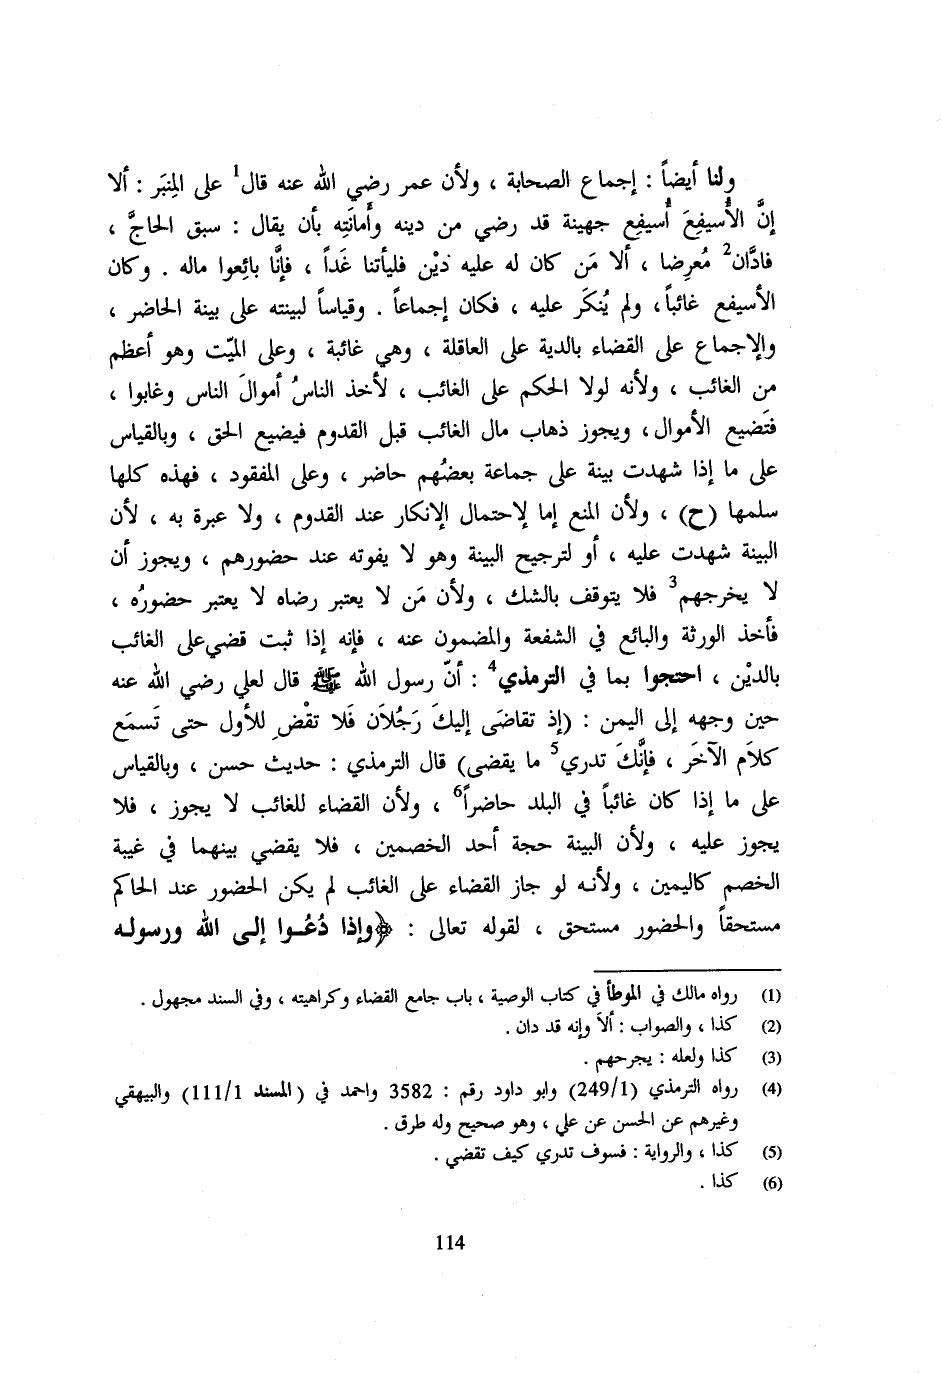 ولنا أيضاً : إجماع الصحابة ، ولأن عمر رضي الله عنه قال1 على المِنبَر : ألا
إنَّ الأُسيفِعَ أُسيفِع جهينة قد رضي من دينه وأمانَتِه بأن يقال : سبق الحاجَّ ،
فادَّان2 مُعرِضا ، ألا مَن كان له عليه دَيْن فليأتنا غَداً ، فإنَّا بائِعوا ماله . وكان
الأسيفع غائباً ، ولم يُنكَر عليه ، فكان إجماعاً . وقياساً لبينته على بينة الحاضر ،
والإجماع على القضاء بالدية على العاقلة ، وهي غائبة ، وعلى الميّت وهو أعظم
من الغائب ، ولأنه لولا الحكم على الغائب ، لأخذ الناسُ أموالَ الناس وغابوا ،
فتَضيع الأموال ، ويجوز ذهاب مال الغائب قبل القدوم فيضيع الحق ، وبالقياس
على ما إذا شهدت بينة على جماعة بعضُهم حاضر ، وعلى المفقود ، فهذه كلها
سلمها (ح) ، ولأن المنع إما لإحتمال الإنكار عند القدوم ، ولا عبرة به ، لأن
البينة شهدت عليه ، أو لترجيح البينة وهو لا يفوته عند حضورهم ، ويجوز أن
لا يخرجهم3 فلا يتوقف بالشك ، ولأن مَن لا يعتبر رضاه لا يعتبر حضورُه ،
فأخذ الورثة والبائع في الشفعة والمضمون عنه ، فإنه إذا ثبت قضي على الغائب
بالديْن ، احتجوا بما في الترمذي4 : أنّ رسول الله ﷺ قال لعلي رضي الله عنه
حين وجهه إلى اليمن : (إذ تقاضَى إليكَ رَجُلاَن فَلا تقْضِ للأول حتى تَسمَع
كلاَم الآخَر ، فإنَّكَ تدري5 ما يقضى) قال الترمذي : حديث حسن ، وبالقياس
على ما إذا كان غائباً في البلد حاضراً6 ، ولأن القضاء للغائب لا يجوز ، فلا
يجوز عليه ، ولأن البينة حجة أحد الخصمين ، فلا يقضي بينهما في غيبة
الخصم كاليمين ، ولأنه لو جاز القضاء على الغائب لم يكن الحضور عند الحاكم
مستحقاً والحضور مستحق ، لقوله تعالى : ﴿وإذا دُعُـوا إلـى الله ورسولـه
(1) رواه مالك في الموطأ في كتاب الوصية ، باب جامع القضاء وكراهيته ، وفي السند مجهول .
(2) كذا ، والصواب : ألاَ وإنه قد دان .
(3) كذا ولعله : يجرحهم .
(4) رواه الترمذي (249/1) وابو داود رقم : 3582 واحمد في (المسند 111/1) والبيهقي
وغيرهم عن الحسن عن علي ، وهو صحيح وله طرق .
(5) كذا ، والرواية : فسوف تدري كيف تقضي .
(6) كذا .
114